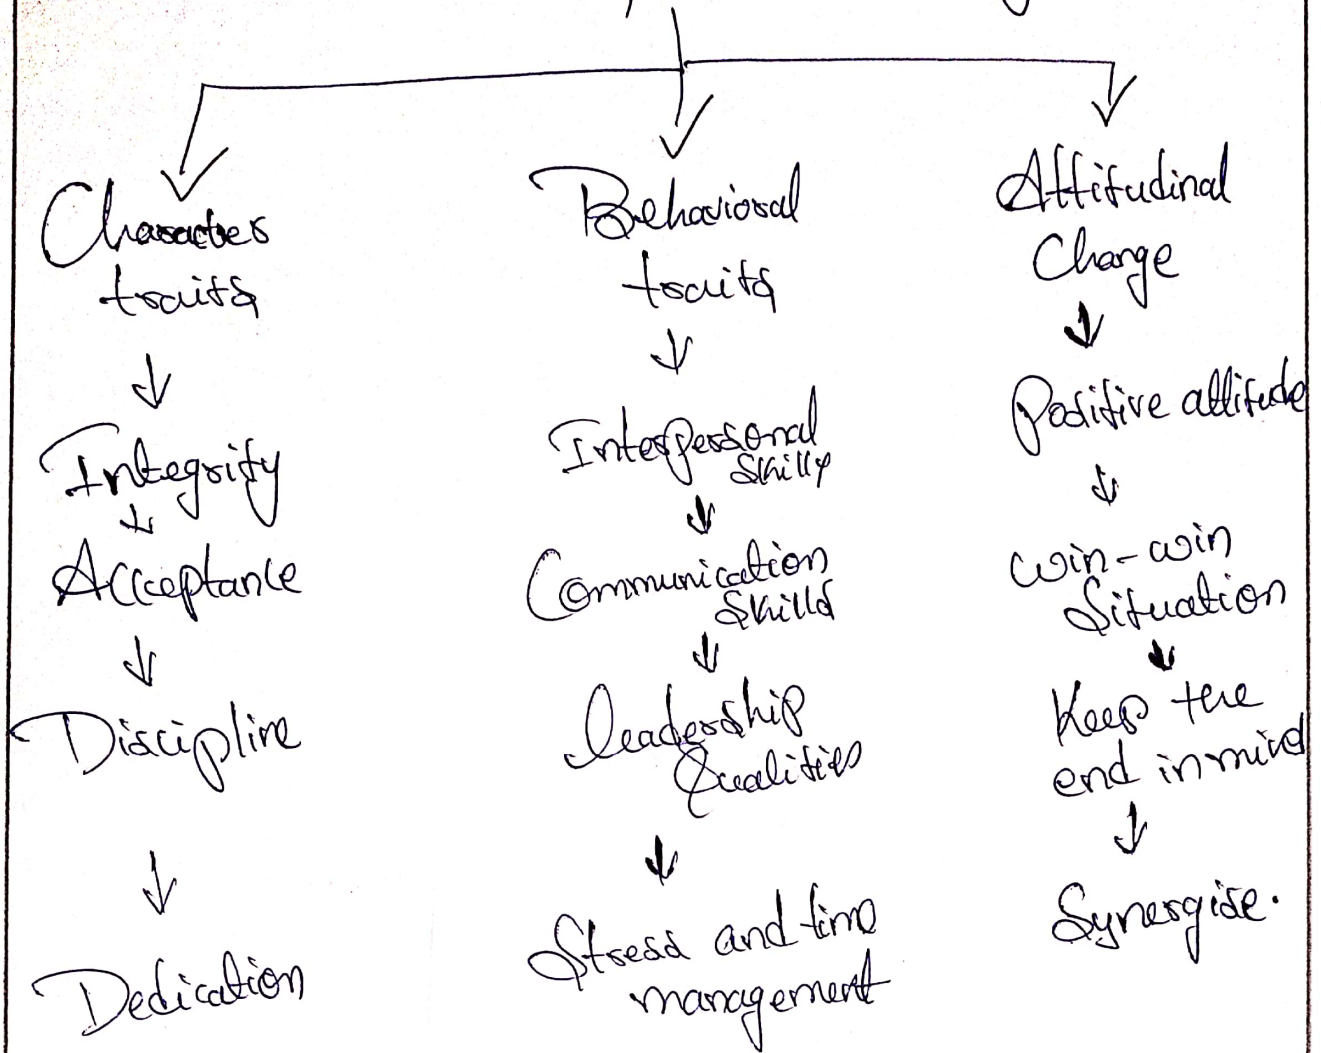 Character
traits
Integrity
Acceptance
Discipline
Dedication
Behavioral
traits
Interpersonal
skills
Communication
Skills
leadership
Qualities
Stress and time
management
Attitudinal
Change
Positive attitude
win-win
Situation
Keep the
end in mind
Synergise.